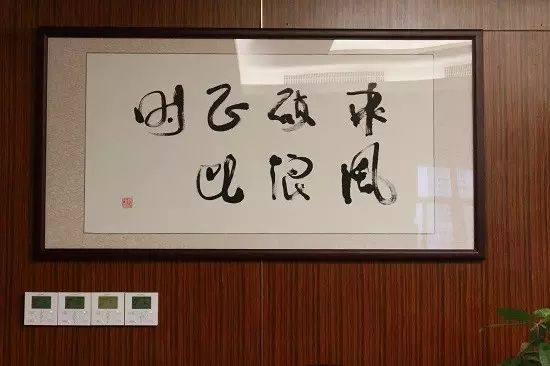 乘风
破浪
正此
时